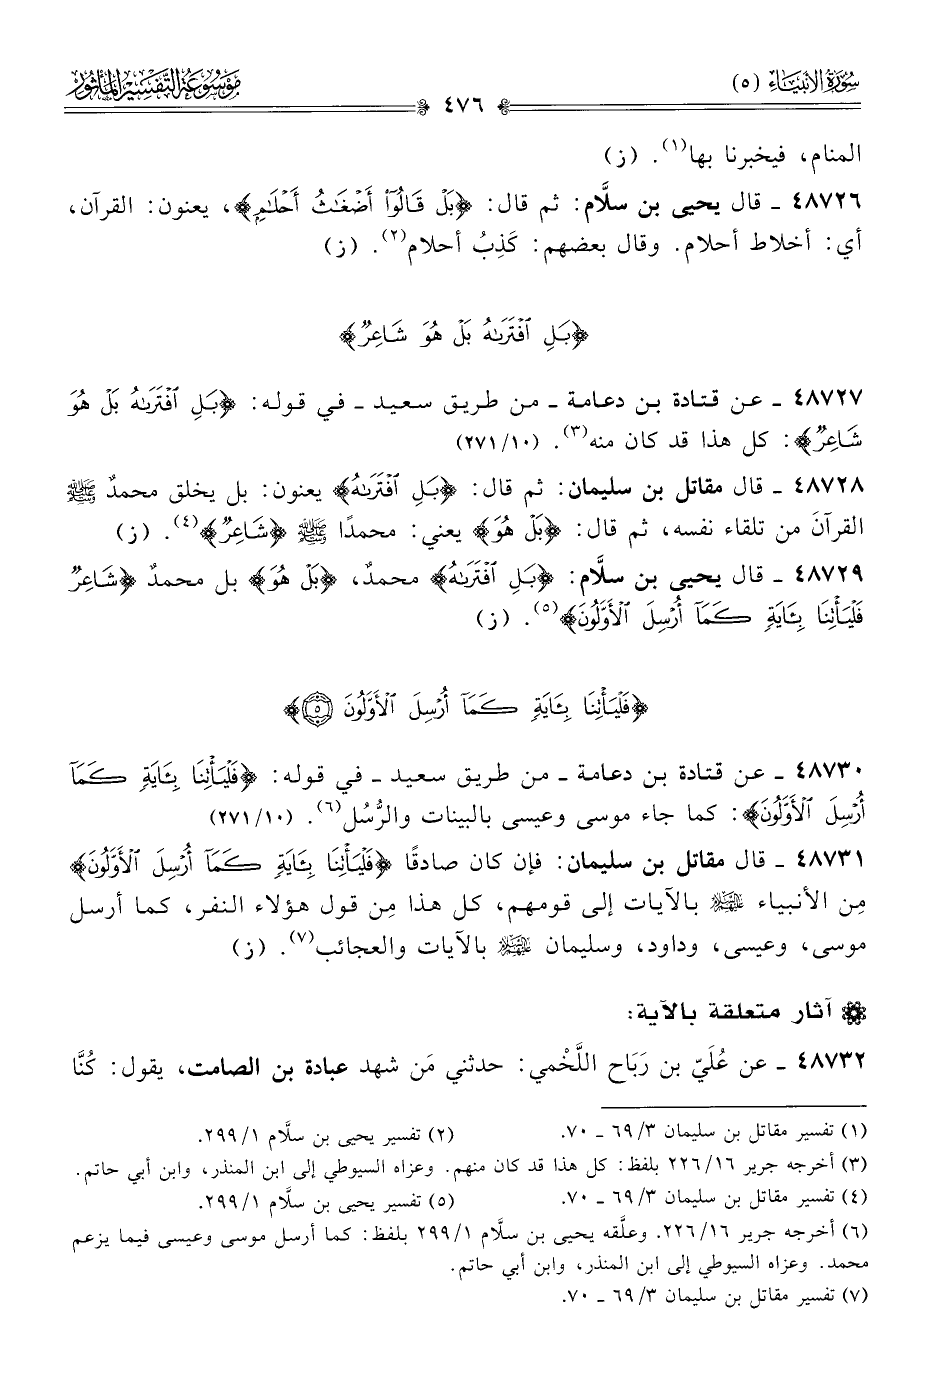 سُورَةُ الأَنبِيَاء (٥)
٤٧٦
مَوْسُوعَةُ التَّفْسِيرِ المَأْثُورِ
المنام، فيخبرنا بها(١). (ز)
٤٨٧٢٦ ـ قال يحيى بن سلَّام: ثم قال: ﴿بَلْ قَالُوٓا۟ أَضْغَٰثُ أَحْلَٰمٍ﴾، يعنون: القرآن،
أي: أخلاط أحلام. وقال بعضهم: كَذِبُ أحلام(٢). (ز)
﴿بَلِ ٱفْتَرَىٰهُ بَلْ هُوَ شَاعِرٌ﴾
٤٨٧٢٧ ـ عن قتادة بن دعامة ـ من طريق سعيد ـ في قوله: ﴿بَلِ ٱفْتَرَىٰهُ بَلْ هُوَ
شَاعِرٌ﴾: كل هذا قد كان منه(٣). (١٠/ ٢٧١)
٤٨٧٢٨ ـ قال مقاتل بن سليمان: ثم قال: ﴿بَلِ ٱفْتَرَىٰهُ﴾ يعنون: بل يخلق محمدٌ ﷺ
القرآنَ من تلقاء نفسه، ثم قال: ﴿بَلْ هُوَ﴾ يعني: محمدًا ﷺ ﴿شَاعِرٌ﴾(٤). (ز)
٤٨٧٢٩ ـ قال يحيى بن سلَّام: ﴿بَلِ ٱفْتَرَىٰهُ﴾ محمدٌ، ﴿بَلْ هُوَ﴾ بل محمدٌ ﴿شَاعِرٌ
فَلْيَأْتِنَا بِـَٔايَةٍ كَمَآ أُرْسِلَ ٱلْأَوَّلُونَ﴾(٥). (ز)
﴿فَلْيَأْتِنَا بِـَٔايَةٍ كَمَآ أُرْسِلَ ٱلْأَوَّلُونَ ٥﴾
٤٨٧٣٠ ـ عن قتادة بن دعامة ـ من طريق سعيد ـ في قوله: ﴿فَلْيَأْتِنَا بِـَٔايَةٍ كَمَآ
أُرْسِلَ ٱلْأَوَّلُونَ﴾: كما جاء موسى وعيسى بالبينات والرُّسُل(٦). (١٠/ ٢٧١)
٤٨٧٣١ ـ قال مقاتل بن سليمان: فإن كان صادقًا ﴿فَلْيَأْتِنَا بِـَٔايَةٍ كَمَآ أُرْسِلَ ٱلْأَوَّلُونَ﴾
مِن الأنبياء عليهم السلام بالآيات إلى قومهم، كل هذا مِن قول هؤلاء النفر، كما أرسل
موسى، وعيسى، وداود، وسليمان عليهم السلام بالآيات والعجائب(٧). (ز)
آثار متعلقة بالآية:
٤٨٧٣٢ ـ عن عُلَيّ بن رَبَاح اللَّخْمي: حدثني مَن شهد عبادة بن الصامت، يقول: كُنَّا
(١) تفسير مقاتل بن سليمان ٣/ ٦٩ ـ ٧٠. (٢) تفسير يحيى بن سلَّام ١/ ٢٩٩.
(٣) أخرجه جرير ١٦/ ٢٢٦ بلفظ: كل هذا قد كان منهم. وعزاه السيوطي إلى ابن المنذر، وابن أبي حاتم.
(٤) تفسير مقاتل بن سليمان ٣/ ٦٩ ـ ٧٠. (٥) تفسير يحيى بن سلَّام ١/ ٢٩٩.
(٦) أخرجه جرير ١٦/ ٢٢٦. وعلَّقه يحيى بن سلَّام ١/ ٢٩٩ بلفظ: كما أرسل موسى وعيسى فيما يزعم
محمد. وعزاه السيوطي إلى ابن المنذر، وابن أبي حاتم.
(٧) تفسير مقاتل بن سليمان ٣/ ٦٩ ـ ٧٠.